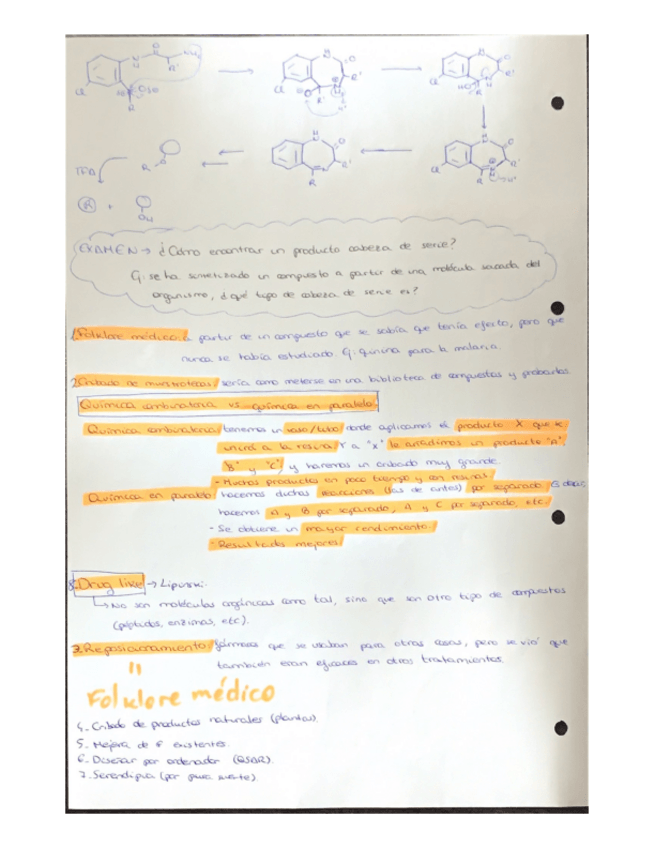 EXAMEN → ¿Cómo encontrar un producto cabeza de serie?
Ej: se ha sintetizado un compuesto a partir de una molécula sacada del
organismo, ¿qué tipo de cabeza de serie es?
1. Folklore médico: a partir de un compuesto que se sabía que tenía efecto, pero que
nunca se había estudiado. Ej: quinina para la malaria.
2. Cribado de sería como meterse en una biblioteca de compuestos y probarlos.
Química combinatoria vs química en paralelo
Química combinatoria: tenemos un vaso/tubo donde aplicamos el producto X que se
unirá a la resina y a "x" le añadimos un producto "A",
"B" y "C", y haremos un cribado muy grande.
- Muchos productos en poco tiempo y con resinas
Química en paralelo: hacemos dichas reacciones (las de antes) por separado. Es decir,
hacemos A y B por separado, A y C por separado, etc.
- Se obtiene un mayor rendimiento.
- Resultados mejores
8. Drug like → Lipinski.
↳ No son moléculas orgánicas como tal, sino que son otro tipo de compuestos
(péptidos, enzimas, etc).
3. Reposicionamiento: fármacos que se usaban para otras cosas, pero se vió que
también eran eficaces en otros tratamientos.
=
Folklore médico
4- Cribado de productos naturales (plantas).
5- Mejora de existentes.
6- Diseñar por ordenador (QSAR).
7- Serendipia (por pura suerte)